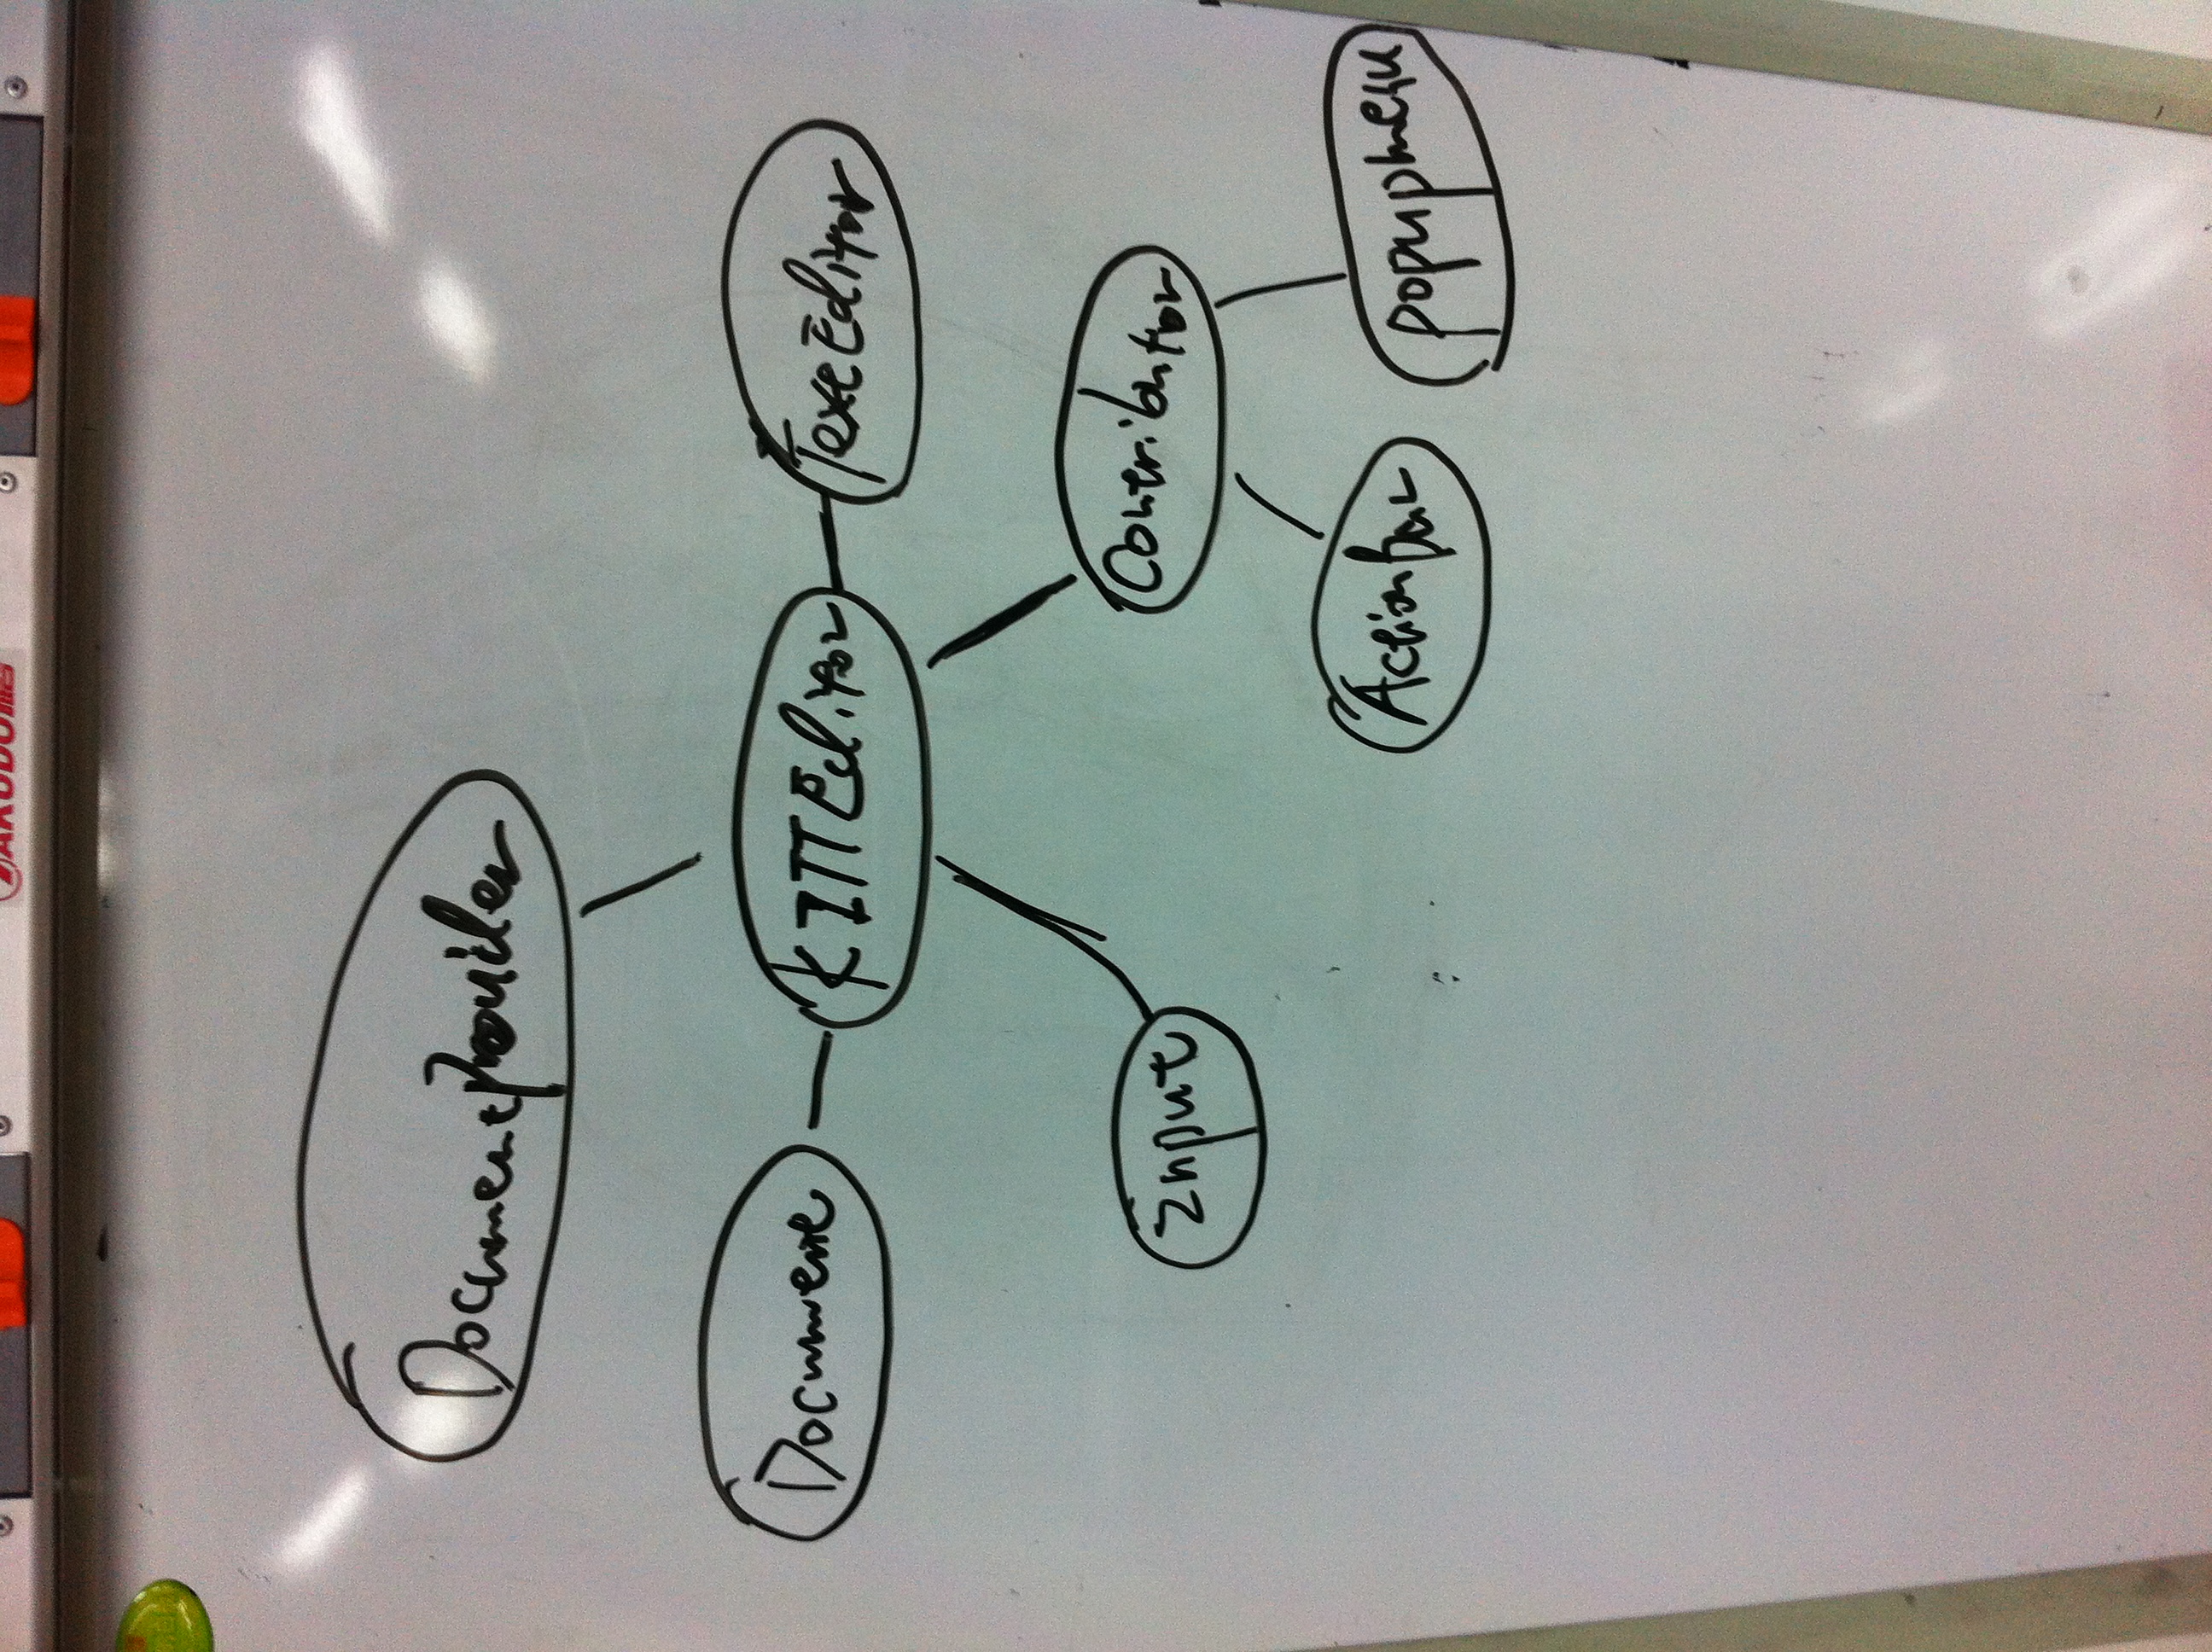 DocumentProvider
Document
KITTEditor
TextEditor
Input
Contributor
ActionBar
popupmenu